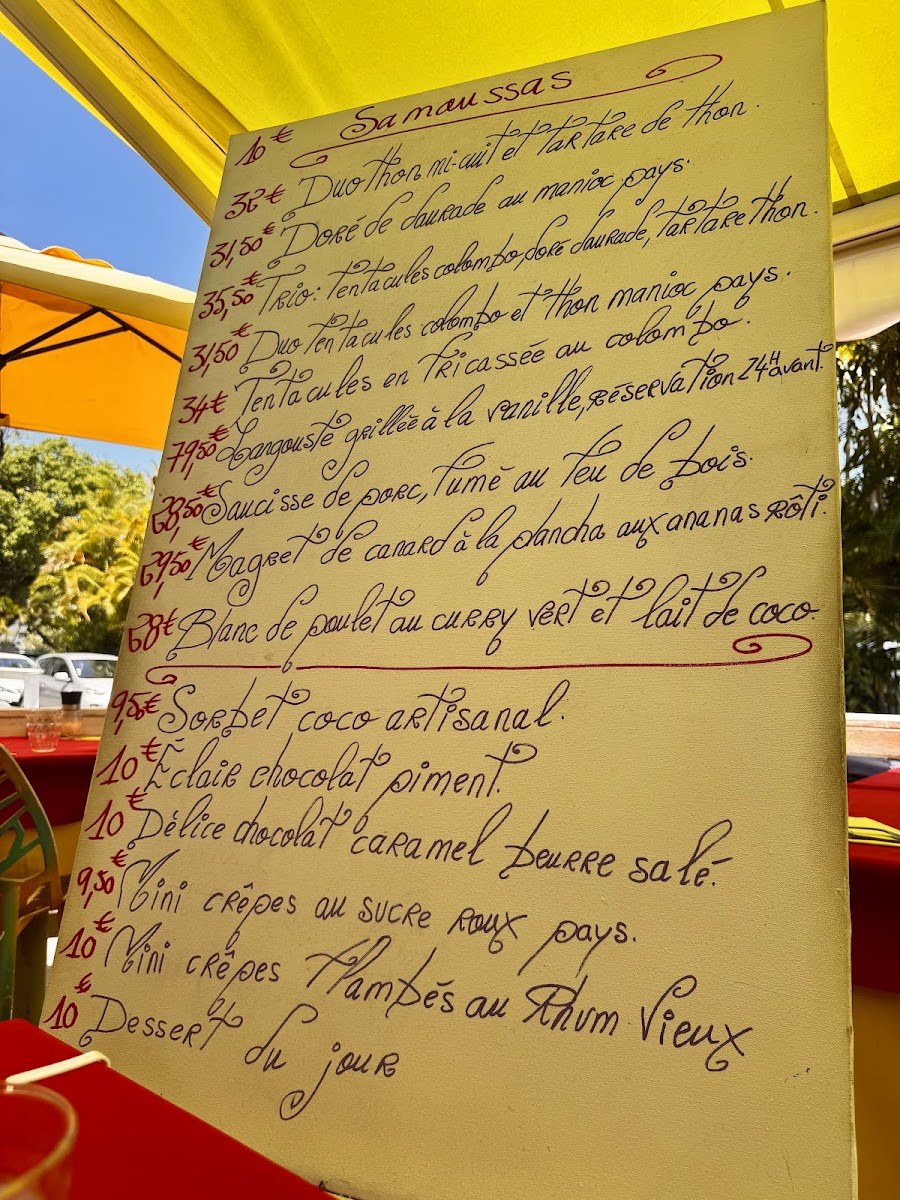 10€ Samoussas
32€ Duo thon mi-cuit et tartare de thon.
31,50€ Doré de daurade au manioc pays.
35,50€ Trio: tentacules colombo, doré daurade, tartare thon.
31,50€ Duo tentacules colombo et thon manioc pays.
34€ Tentacules en fricassée au colombo.
79,50€ Langouste grillée à la vanille, réservation 24H avant.
28,50€ Saucisse de porc, fumé au feu de bois.
29,50€ Magret de canard à la plancha aux ananas rôti.
28€ Blanc de poulet au curry vert et lait de coco.
9,50€ Sorbet coco artisanal.
10€ Éclair chocolat piment.
10€ Délice chocolat caramel beurre salé.
9,50€ Mini crêpes au sucre roux pays.
10€ Mini crêpes flambés au Rhum Vieux
10€ Dessert du jour